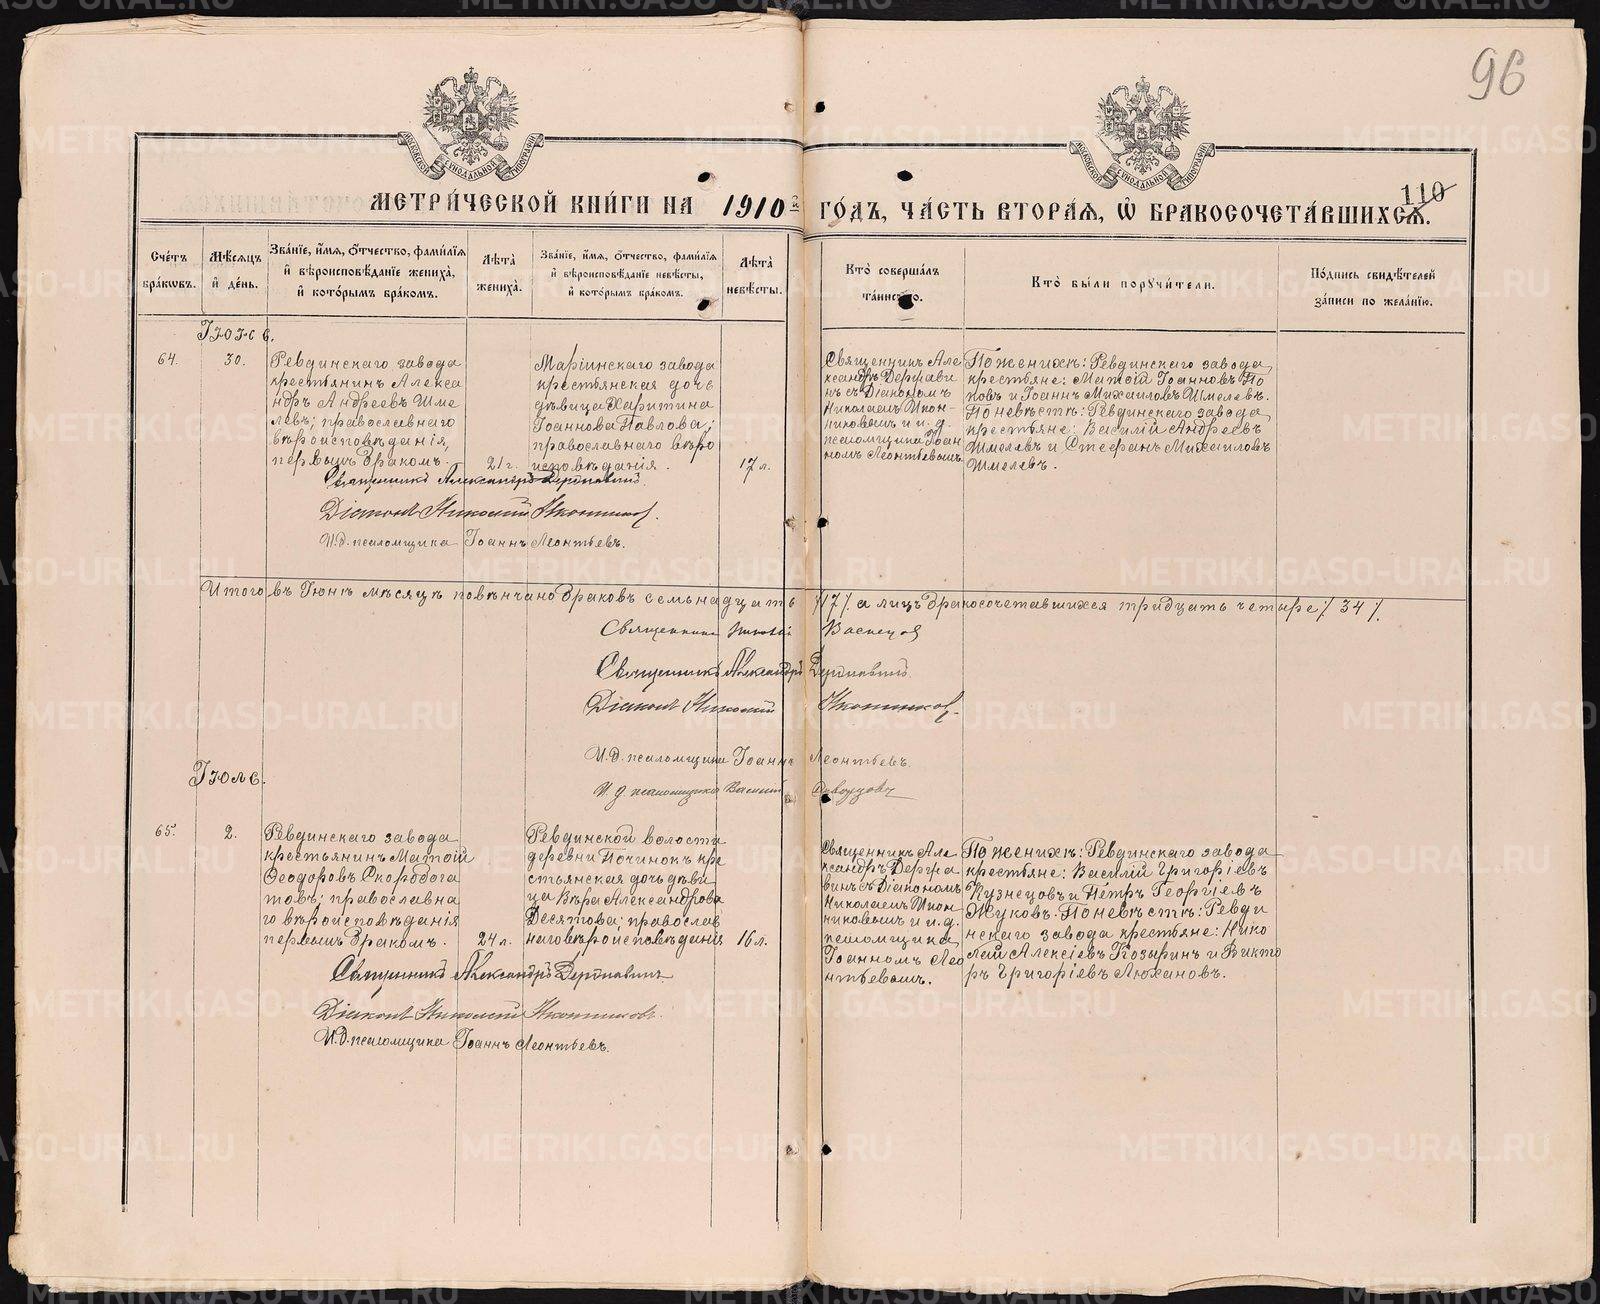 96
110
МЕТРИ́ЧЕСКОЙ КНИ́ГИ НА 1910й ГО́ДЪ, ЧА́СТЬ ВТОРА́Я, Ѡ҆ БРАКОСОЧЕТА́ВШИХСЯ.
МОСКОВСКОЙ СѴНОДАЛЬНОЙ ТИПОГРАФІИ
МОСКОВСКОЙ СѴНОДАЛЬНОЙ ТИПОГРАФІИ
Сче́тъ бра́кѡвъ.
Мѣ́сяцъ и҆ де́нь.
Зва́нїе, и҆́мя, ѻ҆́тчество, фами́лїя и҆ вѣроисповѣ́данїе жениха̀, и҆ кото́рымъ бра́комъ.
Лѣ́та жениха̀.
Зва́нїе, и҆́мя, ѻ҆́тчество, фами́лїя и҆ вѣроисповѣ́данїе невѣ́сты, и҆ кото́рымъ бра́комъ.
Лѣ́та невѣ́сты.
Кто̀ соверша́лъ та́инство.
Кто̀ бы́ли порꙋчи́тели.
По́дпись свидѣ́телей за́писи по жела́нїю.
64.
30.
Ревдинскаго завода
крестьянинъ Алекса
ндръ Андреевъ Шме
левъ; православнаго
вѣроисповѣданія,
первымъ бракомъ.
21 г.
Маріинскаго завода
крестьянская дочь
дѣвица Харитина
Іоаннова Павлова;
православнаго вѣро
исповѣданія.
17 л.
Священникъ Але
ксандръ Держави
нъ съ Діакономъ
Николаемъ Икон-
никовымъ и и. д.
псаломщика Іоан
номъ Леонтьевымъ.
По женихѣ: Ревдинскаго завода
крестьяне: Матѳій Іоанновъ По
повъ и Іоаннъ Михаиловъ Шмелевъ.
По невѣстѣ: Ревдинскаго завода
крестьяне: Василій Андреевъ
Шмелевъ и Стефанъ Михаиловъ
Шмелевъ.
Священникъ Александръ Державинъ.
Діаконъ Николай Иконниковъ.
И. д. псаломщика Іоаннъ Леонтьевъ.
Итого въ Іюнѣ мѣсяцѣ повѣнчано браковъ семьнадцать /17/. а лицъ бракосочетавшихся тридцать четыре /. 34 /.
Священникъ Николай Васнецов
Священникъ Александръ Державинъ
Діаконъ Николай Иконниковъ
И. д. псаломщика Іоаннъ Леонтьевъ.
И. д. псаломщика Василій
Іюль.
65.
2.
Ревдинскаго завода
крестьянинъ Матѳій
Ѳеодоровъ Скоробога
товъ; православна
го вѣроисповѣданія
первымъ бракомъ.
24 л.
Ревдинской волости
деревни Починокъ кре
стьянская дочь дѣви
ца Вѣра Александрова
Десятова; православ
наго вѣроисповѣданія
16 л.
Священникъ Але
ксандръ Держа
винъ съ Діакономъ
Николаемъ Икон
никовымъ и и. д.
псаломщика
Іоанномъ Лео
нтьевымъ.
По женихѣ: Ревдинскаго завода
крестьяне: Василій Григоріевъ
Кузнецовъ и Петръ Георгіевъ
Жуковъ. По невѣстѣ: Ревди
нскаго завода крестьяне: Нико
лай Алексіевъ Козыринъ и Викто
ръ Григоріевъ Люхановъ.
Священникъ Александръ Державинъ
Діаконъ Николай Иконниковъ.
И. д. псаломщика Іоаннъ Леонтьевъ.
METRIKI.GASO-URAL.RU